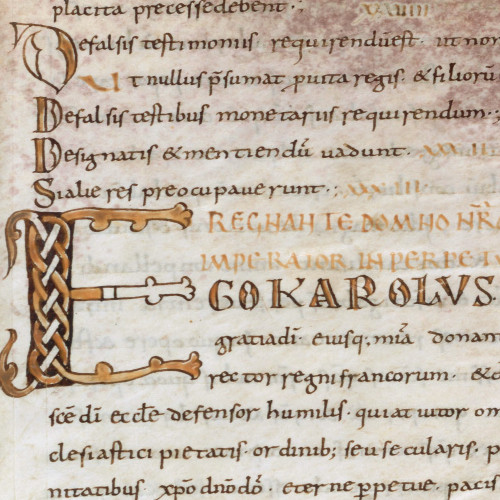 placita precessedebent ·;
Defalsis testimoniis requirendūest · ut non
Ut nullus p̄sumat p̱uita regis · & filiorū
Defalsis testibus monetariis requirendum ·;
Designatis & mentiendū uadunt · XXXIII
Sialie res preocupauerunt ·; XXXIIII
REGNANTE DOMNO NR̄O
IMPERATOR IN PERPETU
EGO KAROLUS
gratiadī eiusq; mīa donant
rector regni francorum · &
scē dī eccłe defensor humilis · quiat uitor om
clesiastici pietatis · ordinib; seu secularis · p
nitatibus xp̄o dn̄o dō · eterne p̱petue · pacis